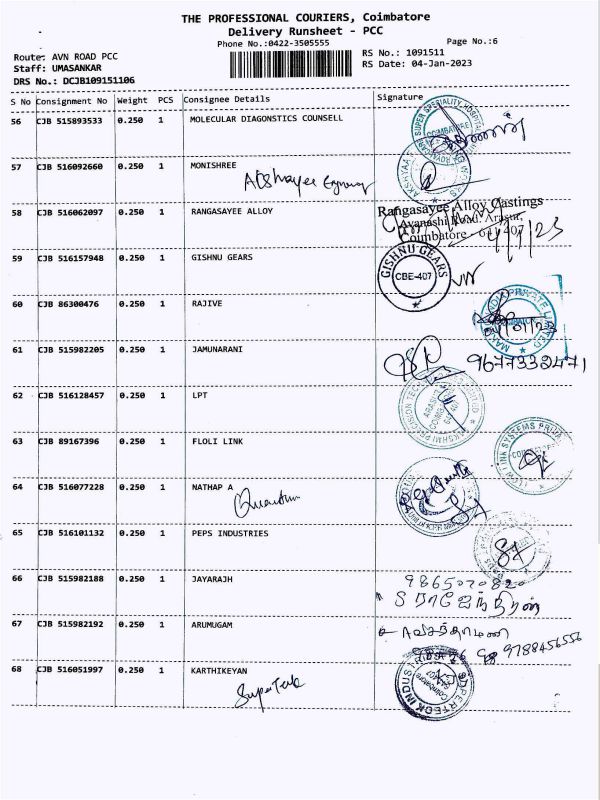 THE PROFESSIONAL COURIERS, Coimbatore
Delivery Runsheet - PCC
Phone No.:0422-3505555
Page No.:6
Route: AVN ROAD PCC
Staff: UMASANKAR
DRS No.: DCJB109151106
RS No.: 1091511
RS Date: 04-Jan-2023
S No Consignment No Weight PCS Consignee Details Signature
56 CJB 515893533 0.250 1 MOLECULAR DIAGONSTICS COUNSELL
57 CJB 516092660 0.250 1 MONISHREE
58 CJB 516062097 0.250 1 RANGASAYEE ALLOY
Rangasayee Alloy Castings
Avanashi Road, Arasur,
Coimbatore - 641 407
59 CJB 516157948 0.250 1 GISHNU GEARS
GISHNU GEARS
CBE-407
60 CJB 86300476 0.250 1 RAJIVE
61 CJB 515982205 0.250 1 JAMUNARANI
9677332471
62 CJB 516128457 0.250 1 LPT
63 CJB 89167396 0.250 1 FLOLI LINK
64 CJB 516077228 0.250 1 NATHAP A
65 CJB 516101132 0.250 1 PEPS INDUSTRIES
66 CJB 515982188 0.250 1 JAYARAJH
9865070820
67 CJB 515982192 0.250 1 ARUMUGAM
9788456556
68 CJB 516051997 0.250 1 KARTHIKEYAN
SuperTech